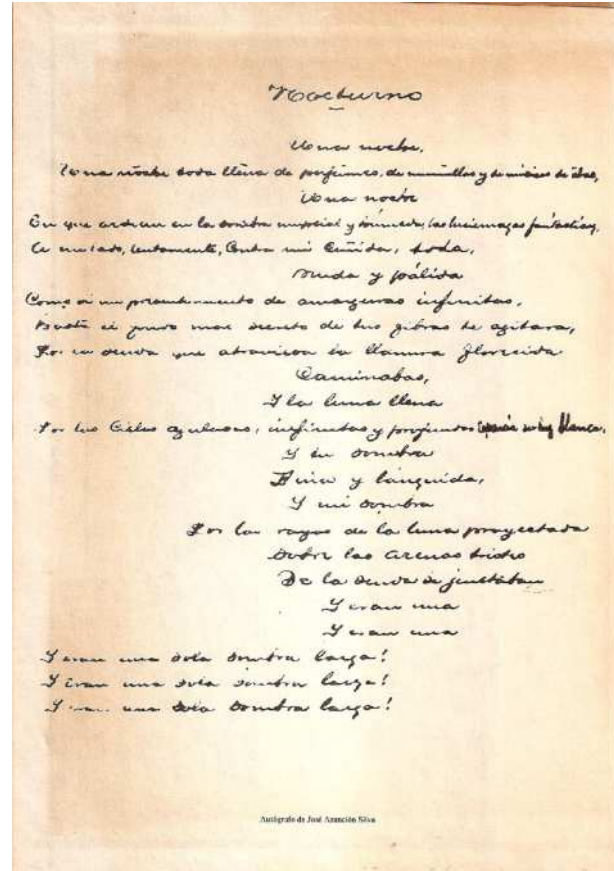 Nocturno
Una noche,
Una noche toda llena de perfumes, de murmullos y de músicas de alas,
Una noche
En que ardían en la sombra nupcial y húmeda, las luciérnagas fantásticas,
A mi lado, lentamente, contra mí ceñida, toda,
Muda y pálida
Como si un presentimiento de amarguras infinitas,
Hasta el fondo más secreto de tus fibras te agitara,
Por la senda que atraviesa la llanura florecida
Caminabas,
Y la luna llena
Por los cielos azulosos, infinitos y profundos esparcía su luz blanca,
Y tu sombra
Fina y lánguida,
Y mi sombra
Por los rayos de la luna proyectada
Sobre las arenas tristes
De la senda se juntaban
Y eran una
Y eran una
Y eran una sola sombra larga!
Y eran una sola sombra larga!
Y eran una sola sombra larga!
Autógrafo de José Asunción Silva